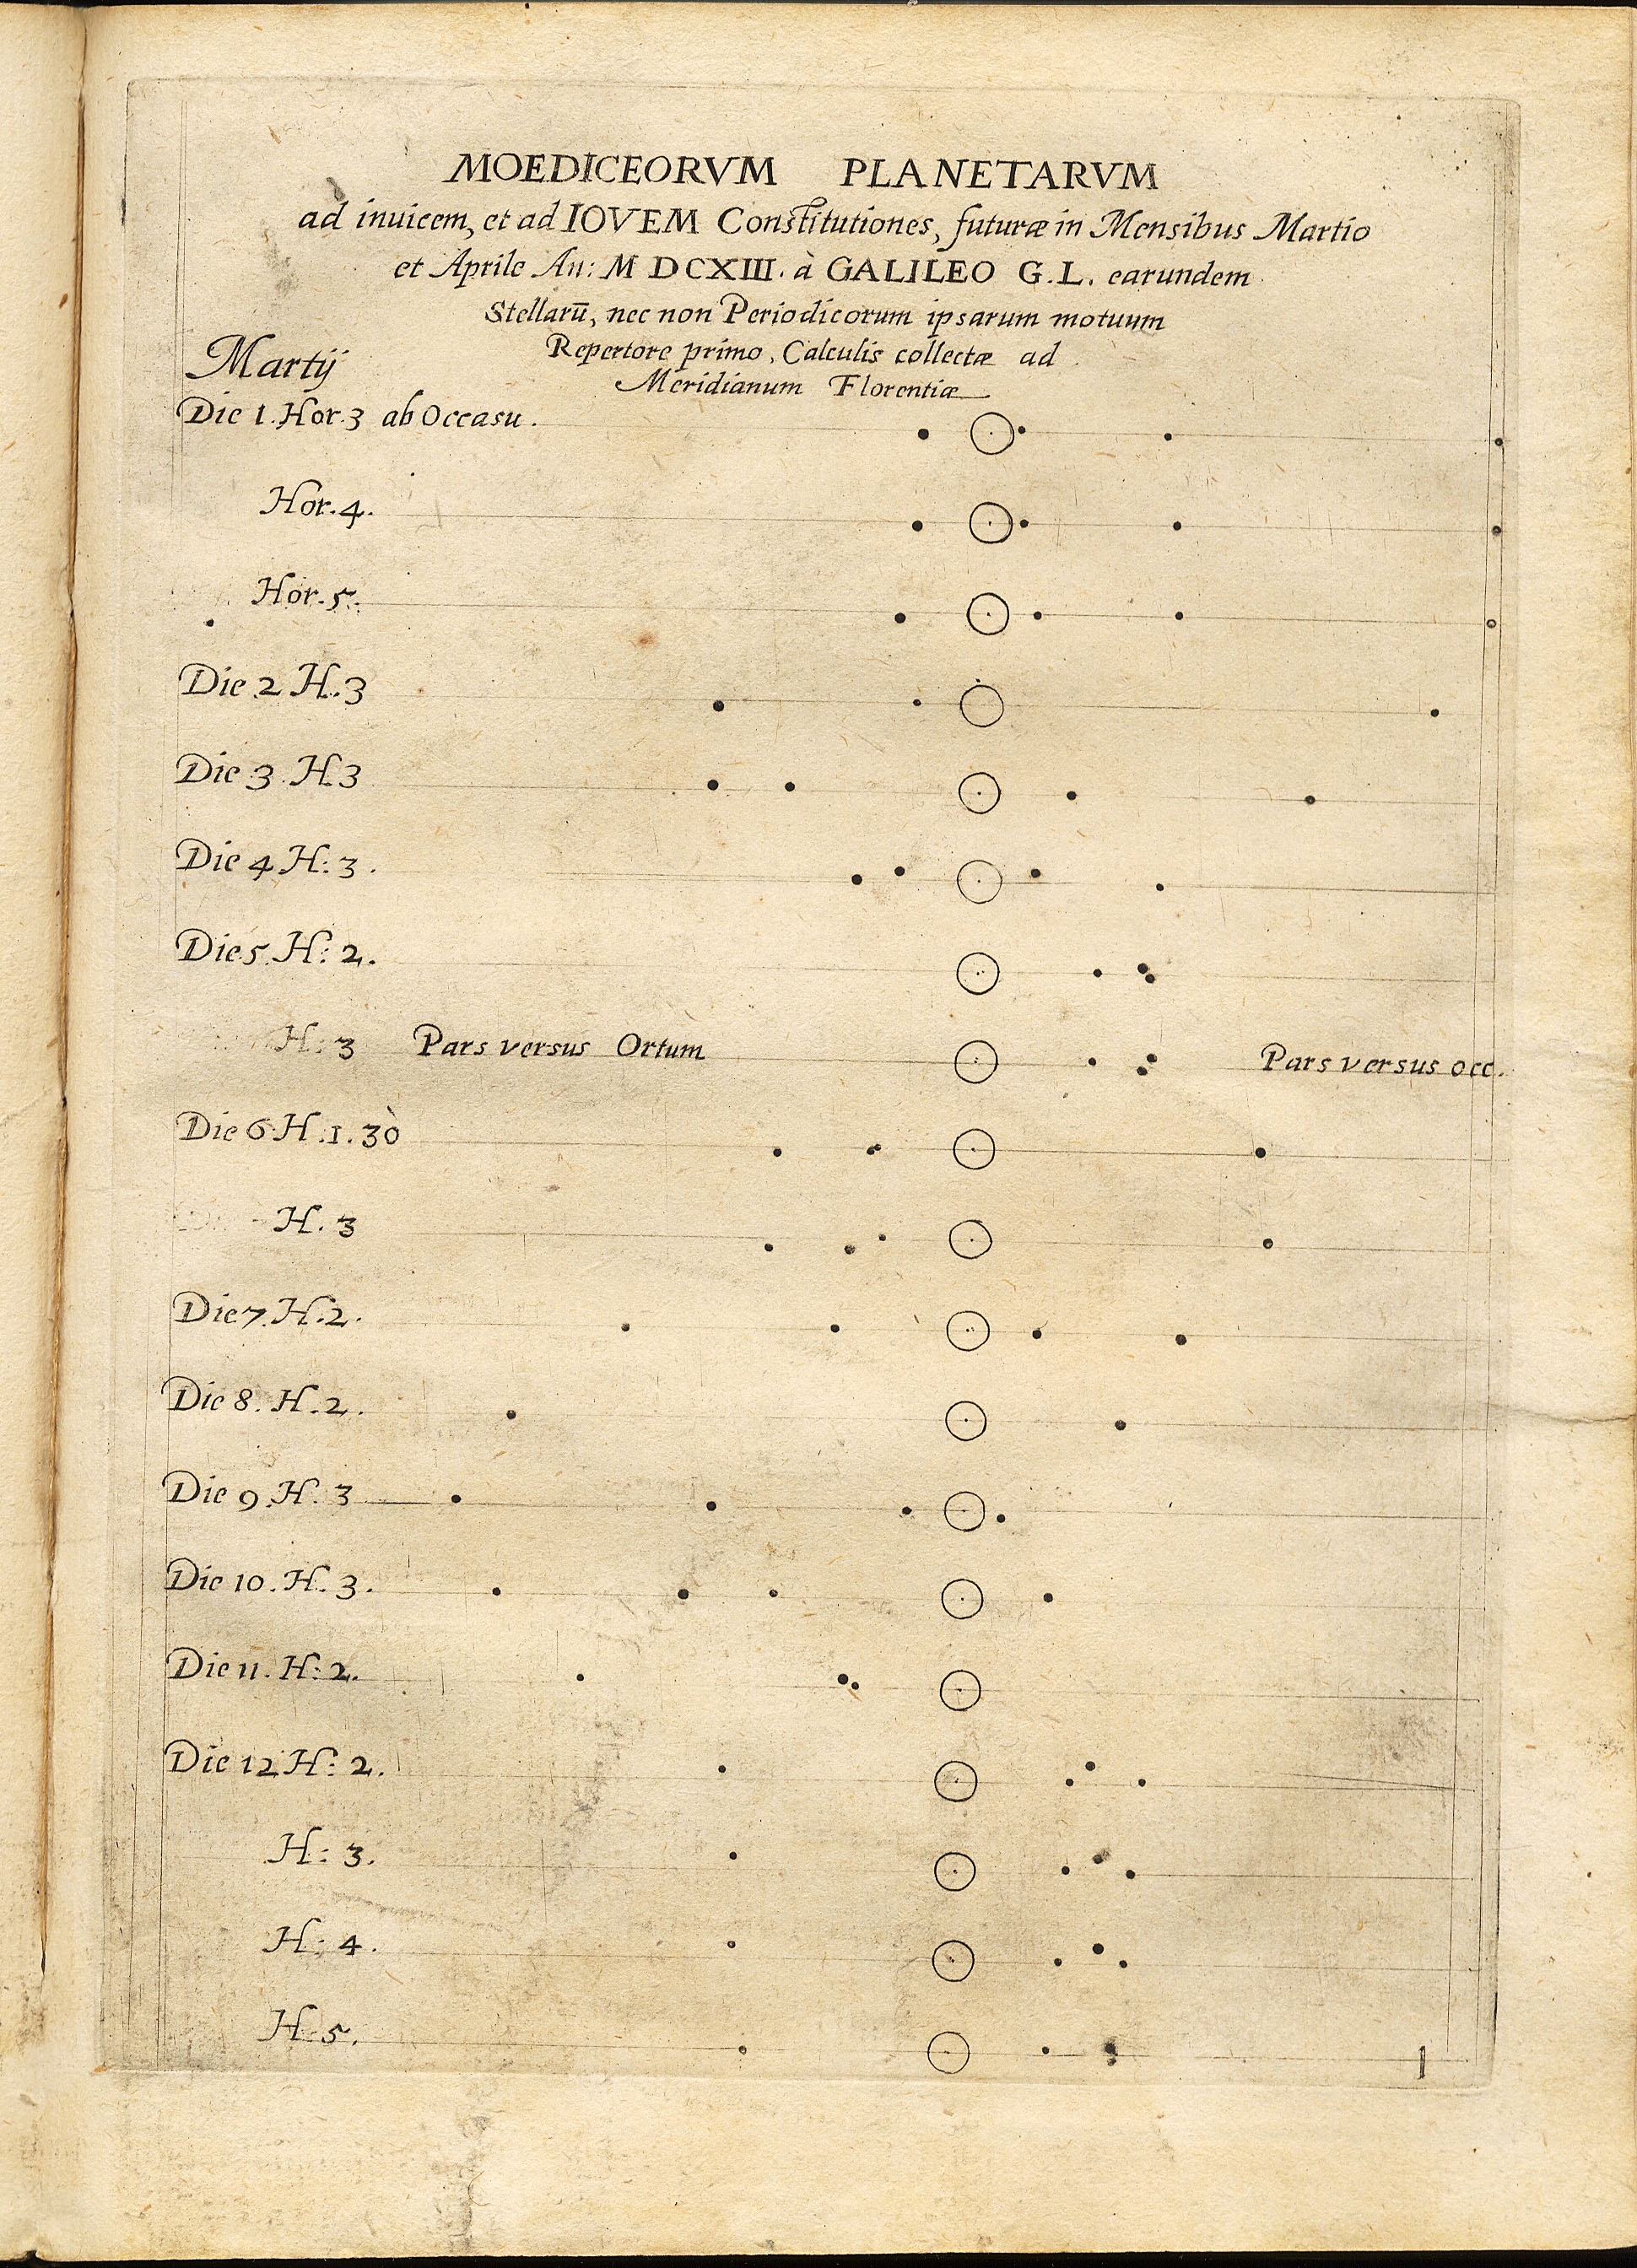 MOEDICEORVM PLANETARVM
ad inuicem, et ad IOVEM Constitutiones, futuræ in Mensibus Martio
et Aprile An: M DCXIII. à GALILEO G.L. earundem
Stellarū, nec non Periodicorum ipsarum motuum
Repertore primo, Calculis collectæ ad
Meridianum Florentiæ
Martij
Die 1. Hor. 3 ab Occasu.
Hor. 4.
Hor. 5.
Die 2 H. 3
Die 3. H 3
Die 4 H: 3.
Die 5. H: 2.
H: 3 Pars versus Ortum Pars versus occ.
Die 6 H. 1. 30
H. 3
Die 7. H. 2.
Die 8. H. 2.
Die 9. H. 3
Die 10. H. 3.
Die 11. H: 2.
Die 12 H: 2.
H: 3.
H: 4.
H: 5.
1